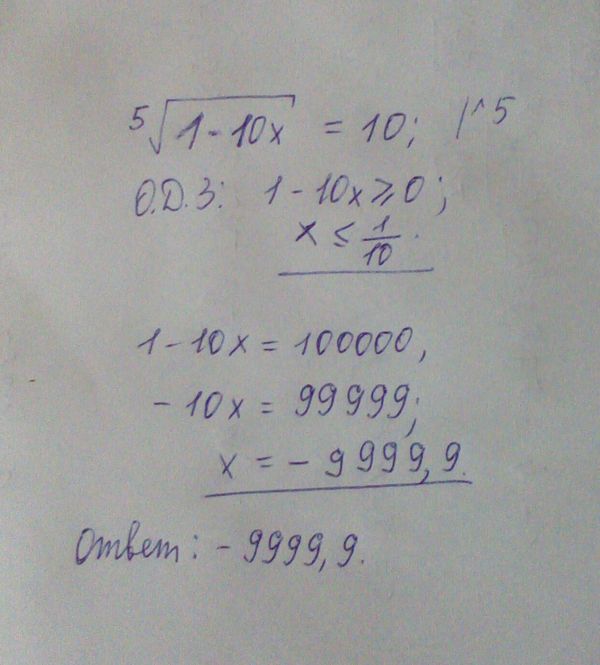 ⁵√(1 - 10x) = 10; |^5
О.Д.З: 1 - 10x ≥ 0;
x ≤ 1/10.
1 - 10x = 100000,
- 10x = 99999;
x = - 9999,9.
Ответ: - 9999,9.